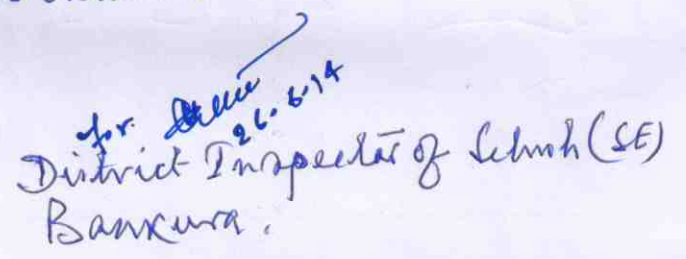 for
26.6.14
District Inspector of Schools (SE)
Bankura.